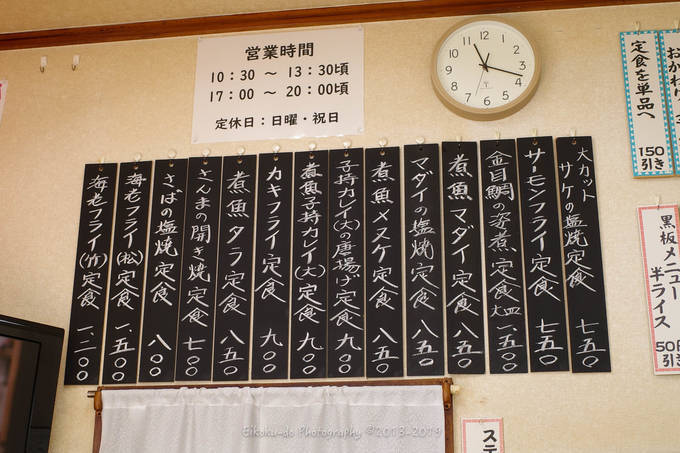 営業時間
10：30 ～ 13：30頃
17：00 ～ 20：00頃
定休日：日曜・祝日
定食を単品へ
150引き
黒板メニュー
半ライス
50円引き
大カット
サケの塩焼定食 七五〇
サーモンフライ定食 七五〇
金目鯛の姿煮定食大皿 一、五〇〇
煮魚マダイ定食 八五〇
マダイの塩焼定食 八五〇
煮魚メヌケ定食 八五〇
子持カレイ(大)の唐揚げ定食 九〇〇
煮魚子持カレイ(大)定食 九〇〇
カキフライ定食 九〇〇
煮魚タラ定食 八五〇
さんまの開き焼定食 七〇〇
さばの塩焼定食 八〇〇
海老フライ(松)定食 一、五〇〇
海老フライ(竹)定食 一、二〇〇
12
1
2
3
4
5
6
7
8
9
10
11
Eikoku-do Photography ©2013-2019